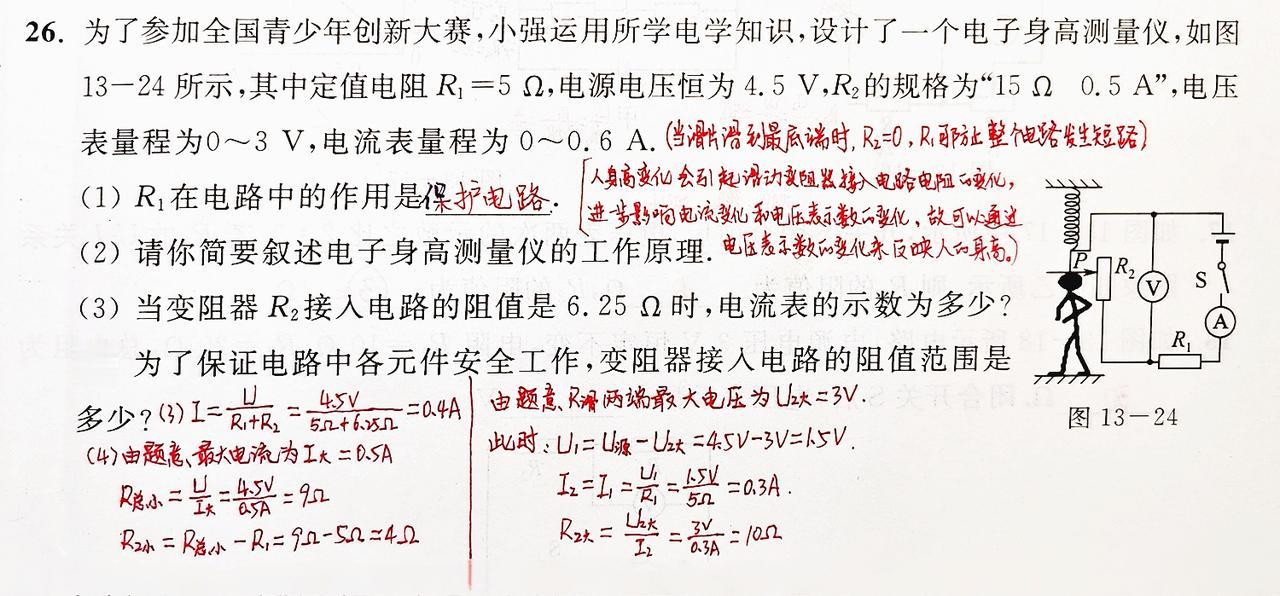 26. 为了参加全国青少年创新大赛,小强运用所学电学知识,设计了一个电子身高测量仪,如图
13－24 所示,其中定值电阻 R₁＝5 Ω,电源电压恒为 4.5 V,R₂的规格为“15 Ω 0.5 A”,电压
表量程为0～3 V,电流表量程为 0～0.6 A. (当滑片滑到最底端时, R₂=0, R₁可防止整个电路发生短路)
(1) R₁在电路中的作用是保护电路.
人身高变化会引起滑动变阻器接入电路电阻的变化,
进一步影响电流变化和电压表示数的变化, 故可以通过
(2) 请你简要叙述电子身高测量仪的工作原理.
电压表示数的变化来反映人的身高。)
(3) 当变阻器 R₂接入电路的阻值是 6.25 Ω 时,电流表的示数为多少?
为了保证电路中各元件安全工作,变阻器接入电路的阻值范围是
多少? (3) I = U/(R₁+R₂) = 4.5V/(5Ω+6.25Ω) = 0.4A
(4)由题意、最大电流为 I大 = 0.5A
R总小 = U/I大 = 4.5V/0.5A = 9Ω
R2小 = R总小 - R₁ = 9Ω-5Ω=4Ω
由题意、R滑两端最大电压为U2大=3V.
此时: U₁=U源-U2大=4.5V-3V=1.5V.
I₂=I₁=U₁/R₁=1.5V/5Ω=0.3A.
R2大=U2大/I₂=3V/0.3A=10Ω
P
R₂
V
S
A
R₁
图 13－24